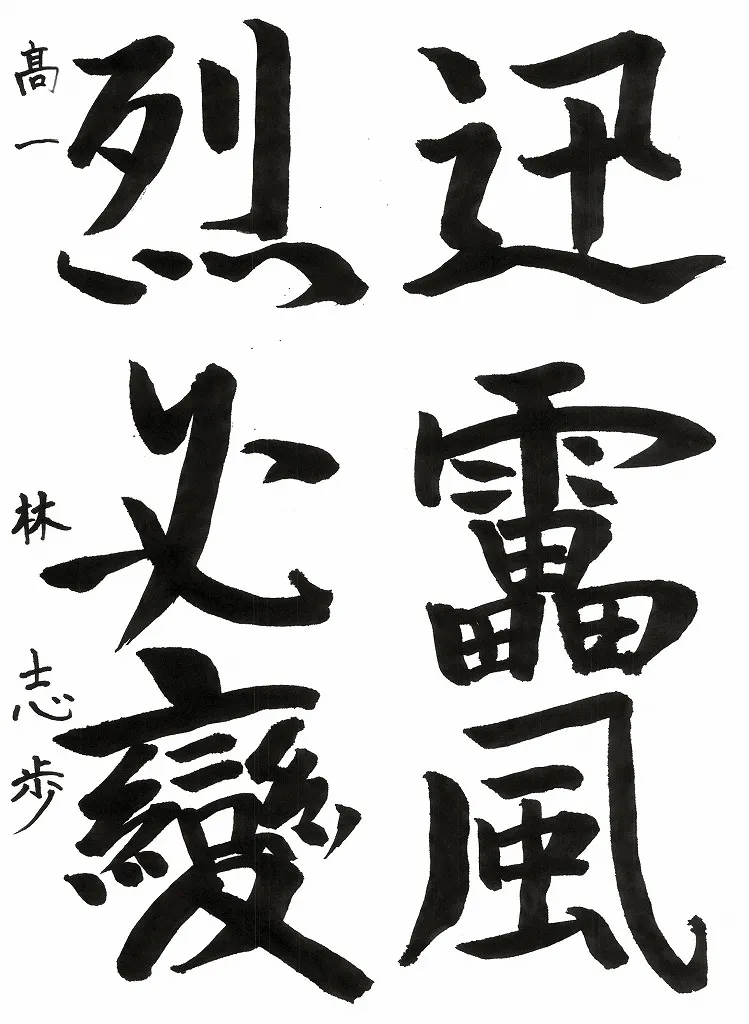 迅靁風
烈必變
髙一 林 志歩